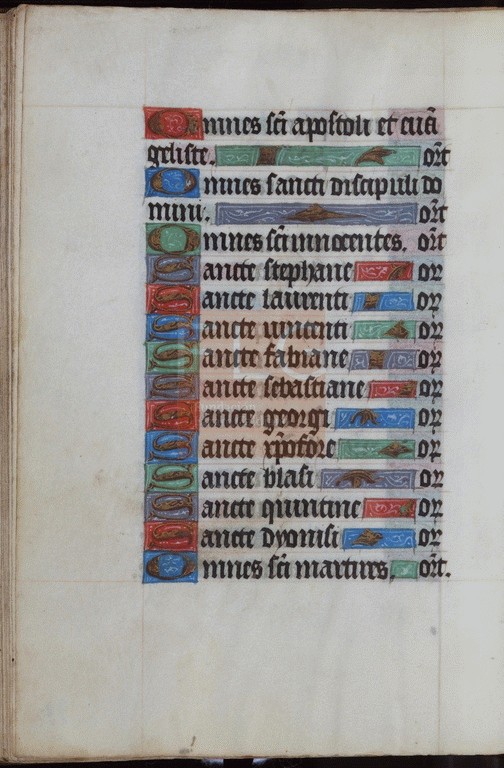 Omnes sc̄i apostoli et euā
geliste. or̄t
Omnes sancti discipuli do
mini. or̄t
Omnes sc̄i innocentes. or̄t
Sancte stephane or
Sancte laurenti or
Sancte uincenti or
Sancte fabiane or
Sancte sebastiane or
Sancte georgi or
Sancte xp̄ofore or
Sancte blasi or
Sancte quintine or
Sancte dyonisi or
Omnes sc̄i martires. or̄t.